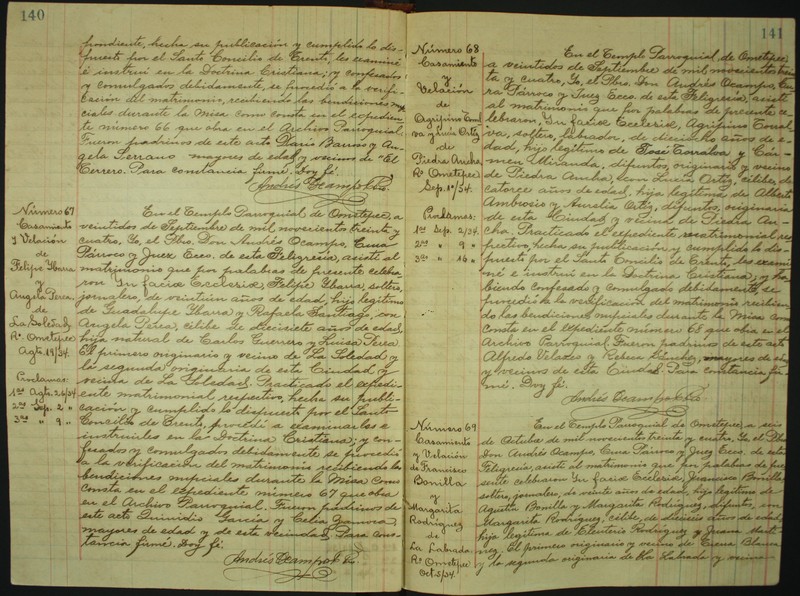 140
pondiente, hecha su publicación y cumplido lo dis-
puesto por el Santo Concilio de Trento, les examiné
é instruí en la Doctrina Cristiana; y confesados
y comulgados debidamente, se procedió a la verifi-
cación del matrimonio, recibiendo las bendiciones nup
ciales durante la Misa como consta en el expedien-
te número 66 que obra en el Archivo Parroquial.
Fueron padrinos de este acto Darío Barroso y An-
gela Serrano mayores de edad y vecinos de "El
Cerrero. Para constancia firmé. Doy fé.
Andrés Ocampo
Número 67
Casamiento
y Velación
de
Felipe Ibarra
y
Angela Perea,
de
La Soledad,
R. Ometepec
Agt. 19/34.
Proclamas:
1as Agts. 26/34
2as Sep. 2 "
3as " 9 "
En el Templo Parroquial de Ometepec, a
veintidos de Septiembre de mil novecientos treinta y
cuatro, Yo, el Pbro. Don Andrés Ocampo, Cura
Párroco y Juez Ecco. de esta Feligresía, asistí al
matrimonio que por palabras de presente celebra-
ron In facie Ecclesiæ, Felipe Ibarra, soltero,
jornalero, de veintiún años de edad, hijo legítimo
de Guadalupe Ibarra y Rafaela Santiago, con
Angela Perea, célibe de diecisiete años de edad,
hija natural de Carlos Guerrero y Luisa Perea.
El primero originario y vecino de La Soledad y
la segunda originaria de esta Ciudad y
vecina de La Soledad. Practicado el expedi-
ente matrimonial respectivo, hecha su publi-
cación y cumplido lo dispuesto por el Santo
Concilio de Trento, procedí a examinarles e
instruirles en la Doctrina Cristiana; y con-
fesados y comulgados debidamente se procedió
a la verificación del matrimonio recibiendo las
bendiciones nupciales durante la Misa como
consta en el expediente número 67 que obra
en el Archivo Parroquial. Fueron padrinos de
este acto García y Celia
mayores de edad y de esta vecindad. Para cons-
tancia firmé. Doy fé.
Andrés Ocampo
141
Número 68
Casamiento
y
Velación
de
Agripino Torral
va y Lucía Ortiz
de
Piedra Ancha
R. Ometepec
Sep. 1º/34.
Proclamas:
1as Sep. 2/34.
2as " 9 "
3as " 16 "
En el Templo Parroquial de Ometepec,
a veintidos de Septiembre de mil novecientos trein-
ta y cuatro, Yo, el Pbro. Don Andrés Ocampo, Cu-
ra Párroco y Juez Ecco. de esta Feligresía, asistí
al matrimonio que por palabras de presente ce-
lebraron In facie Ecclesiæ, Agripino Torral-
va, soltero, labrador, de dieciocho años de e-
dad, hijo legítimo de José Torralva y Cár-
men Miranda, difuntos, originario y vecino
de Piedra Ancha, con Lucía Ortiz, célibe, de
catorce años de edad, hija legítima de Alberto
Ambrosio y Aurelia Ortiz, difuntos, originaria
de esta Ciudad y vecina de Piedra An-
cha. Practicado el expediente matrimonial res-
pectivo, hecha su publicación y cumplido lo dis-
puesto por el Santo Concilio de Trento, les exami-
né e instruí en la Doctrina Cristiana; y ha-
biendo confesado y comulgado debidamente, se
procedió a la verificación del matrimonio recibien-
do las bendiciones nupciales durante la Misa como
consta en el expediente número 68 que obra en el
Archivo Parroquial. Fueron padrinos de este acto
Alfredo Velazes y Rebeca Sánchez, mayores de edad
y vecinos de esta Ciudad. Para constancia fir-
mé. Doy fé.
Andrés Ocampo
Número 69
Casamiento
y Velación
de Francisco
Bonilla
y
Margarita
Rodríguez
de
La Labrada
R. Ometepec
Oct. 5/34.
En el Templo Parroquial de Ometepec, a seis
de Octubre de mil novecientos treinta y cuatro, Yo, el Pbro.
Don Andrés Ocampo, Cura Párroco y Juez Ecco. de esta
Feligresía, asistí al matrimonio que por palabras de pre-
sente celebraron In facie Ecclesiæ, Francisco Bonilla,
soltero, jornalero, de veinte años de edad, hijo legítimo de
Agustín Bonilla y Margarita Rodríguez, difuntos, con
Margarita Rodríguez, célibe, de dieciseis años de edad,
hija legítima de Eleuterio Rodríguez y Juana Martí-
nez. El primero originario y vecino de Tierra Blanca
y la segunda originaria de La Labrada y vecina